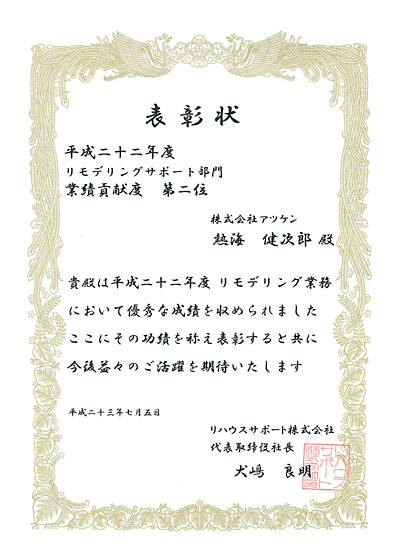 表彰状
平成二十二年度
リモデリングサポート部門
業績貢献度 第二位
株式会社アツケン
熱海 健次郎 殿
貴殿は平成二十二年度 リモデリング業務
において優秀な成績を収められました
ここにその功績を称え表彰すると共に
今後益々のご活躍を期待いたします
平成二十三年七月五日
リハウスサポート株式会社
代表取締役社長
犬嶋 良明